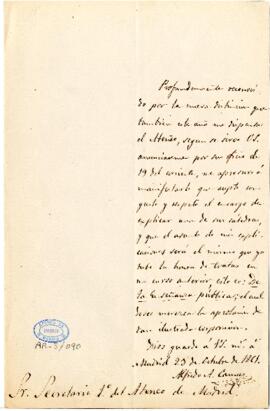 Profundamente reconoci
do por la nueva distincion que
tambien este año me dispensa
el Ateneo, segun se sirve V.S.
anunciarme por su oficio de
19 del corriente, me apresuro á
manifestarle que acepto con
gusto y respeto el encargo de
explicar una de sus cátedras,
y que el asunto de mis expli-
caciones será el mismo que ya
tube la honra de tratar en
mi curso anterior, esto es: De
la Enseñanza pública; el cual
deseo merezca la aprobacion de
tan ilustrada corporacion.
Dios guarde á V.S. m.s a.s
Madrid 23 de Octubre de 1861.
Alfredo A. Camus
Sr. Secretario 1.º del Ateneo de Madrid.